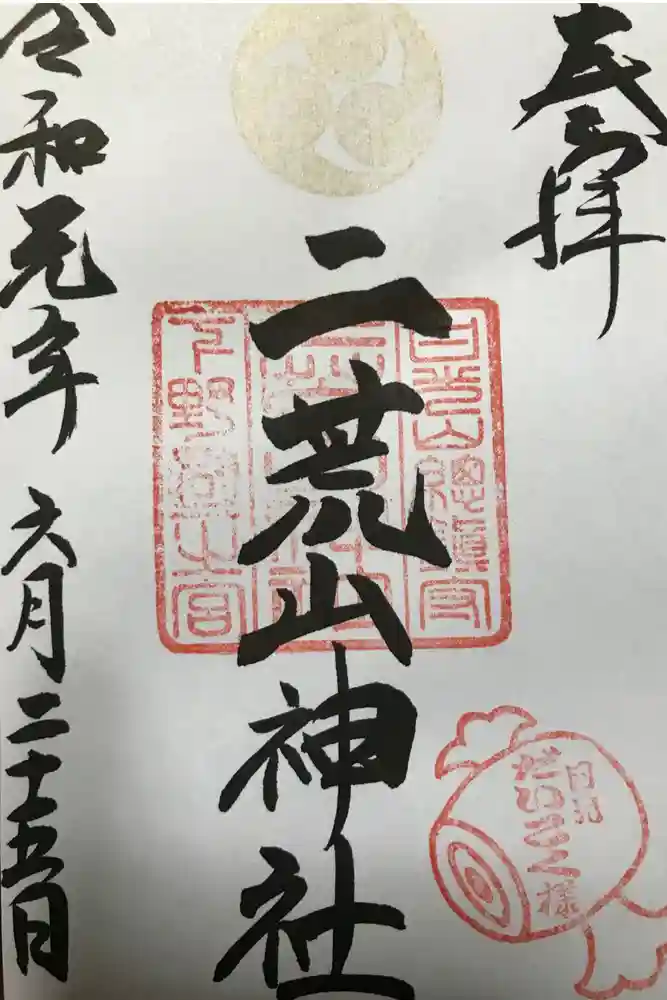 奉拝
二荒山神社
日光山總鎮守
下野國一之宮
日光
だいこく様
令和元年六月二十五日